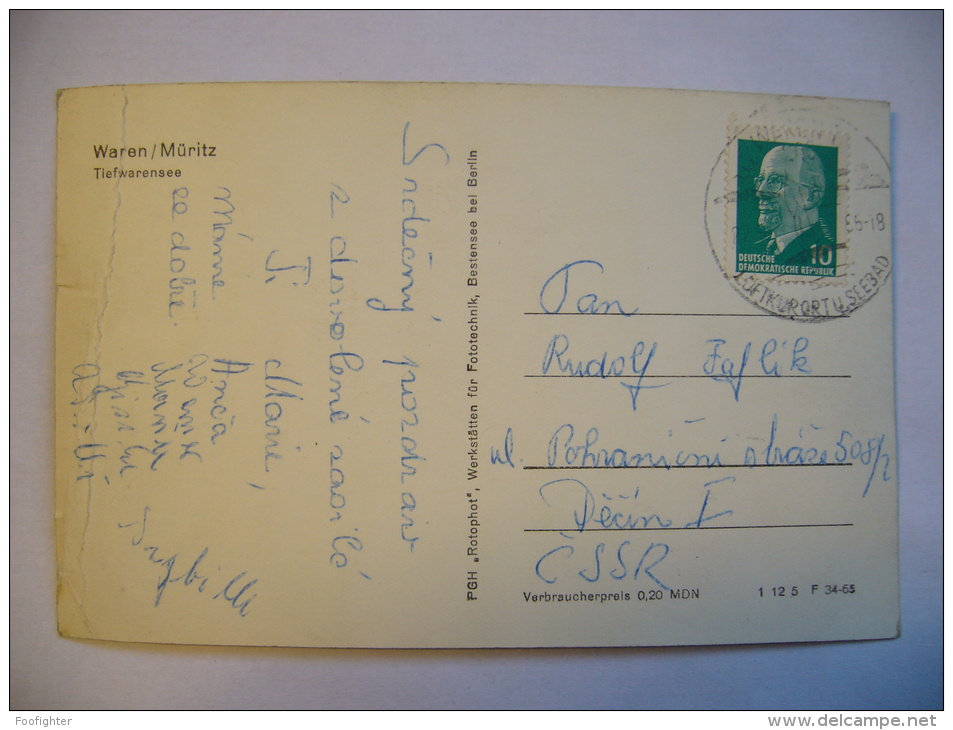 Waren/Müritz
Tiefwarensee
Srdečný pozdrav
z dovolené zasílá
Ti Marie,
Anča
Máme
se dobře.
PGH „Rotophot", Werkstätten für Fototechnik, Bestensee bei Berlin
DEUTSCHE
DEMOKRATISCHE REPUBLIK
10
-18
LUFTKURORT U. SEEBAD
Pan
Rudolf Faflik
ul. Pohraniční stráže 508/2
Děčín I
ČSSR
Verbraucherpreis 0,20 MDN
1 12 5 F 34-65
Foofighter
www.delcampe.net